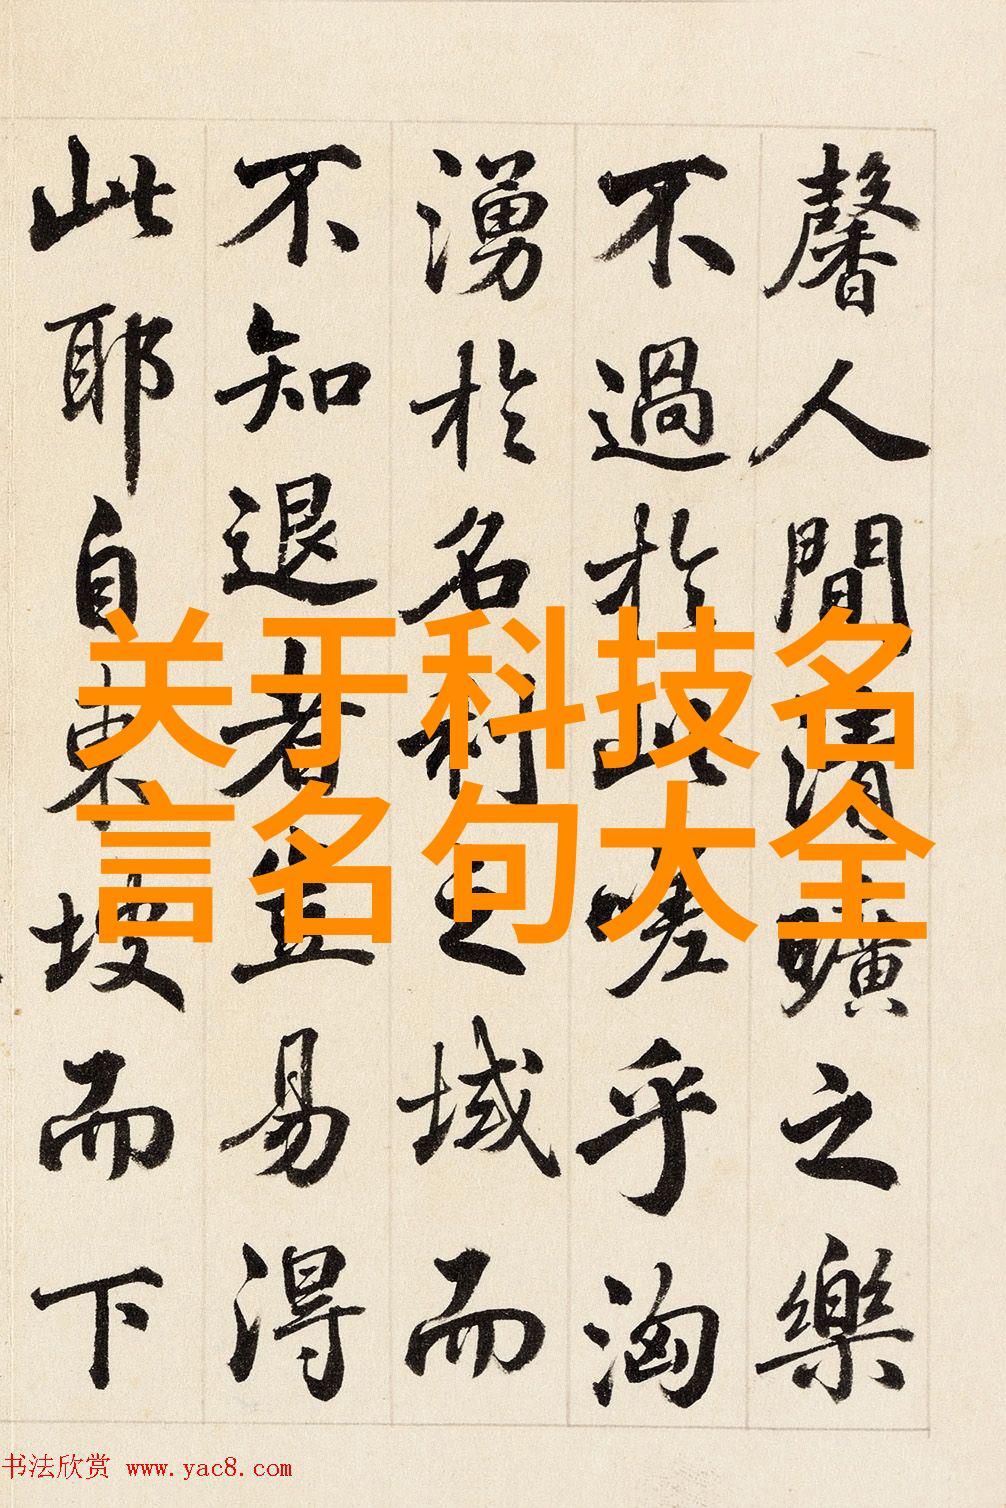 馨人間清曠之樂
不過於此嗟乎洶
湧於名利之域而
不知退者豈易得
此耶自東坡而下
关于科技名
言名句大全
书法欣赏 www.yac8.com